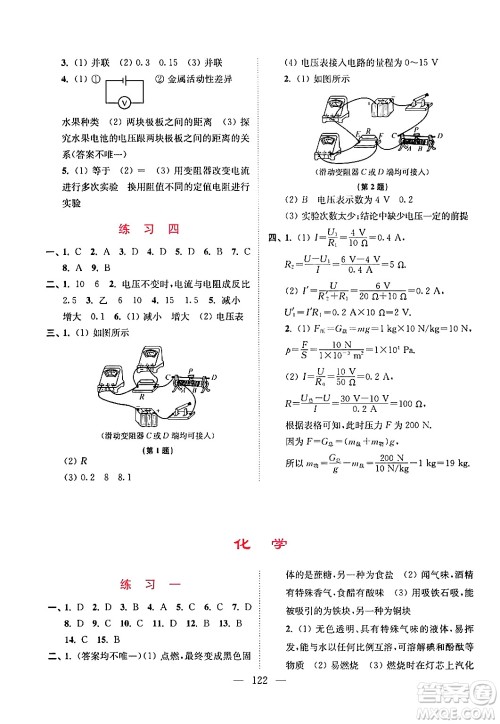 3. (1) 并联 (2) 0.3 0.15 (3) 并联
4. (1) ① V ② 金属活动性差异
水果种类 (2) 两块极板之间的距离 (3) 探
究水果电池的电压跟两块极板之间的距离的
关系(答案不唯一)
5. (1) 等于 (2) = (3) 用变阻器改变电流
进行多次实验 换用阻值不同的定值电阻进行
实验
练 习 四
一、1. C 2. A 3. D 4. B 5. D 6. C 7. C
8. A
二、1. 10 6 2. 电压不变时,电流与电阻成反比
2.5 3. 乙 4. 20 1.5 5. 减小 减小
增大 0.1 6. (1) 减小 增大 增大
三、1. (1) 如图所示
A B C D P R
(滑动变阻器 C 或 D 端均可接入)
(第 1 题)
(2) R
(3) 0.2 8 8.1
(4) 电压表接入电路的量程为 0～15 V
2. (1) 如图所示
(滑动变阻器 C 或 D 端均可接入)
(第 2 题)
(2) B 电压表示数为 2 V
(3) 实验次数太少;结论中缺少电压一定的前提
四、1. (1) I=U₁/R₁=4 V/10 Ω=0.4 A
R₂=(U-U₁)/I=(6 V-4 V)/0.4 A=5 Ω
(2) I′=U/(R′₂+R₁)=6 V/(20 Ω+10 Ω)=0.2 A
U′₁=I′R₁=0.2 A×10 Ω=2 V
2. (1) F压=G总=mg=1 kg×10 N/kg=10 N
p=F/S=10 N/(1×10⁻³ m²)=1×10⁴ Pa
(2) I=U/R₀=10 V/50 Ω=0.2 A
R=(U总-U)/I=(30 V-10 V)/0.2 A=100 Ω
根据表格可知,此时压力为 200 N.
因为 F=G总=(m物+m盘)g
所以 m物=F/g-m盘=200 N/10 N/kg-1 kg=19 kg
化 学
练 习 一
一、1. D 2. D 3. B 4. D 5. C 6. B 7. B
8. D 9. D 10. B 11. B 12. C 13. C
14. C 15. B
二、1. (答案均不唯一)(1) 点燃,最终变成黑色固
体的是蔗糖,另一种为食盐 (2) 闻气味,酒精
有特殊香气,食醋有酸味 (3) 用吸铁石吸,
能被吸引的为铁块,另一种为铜块
2. (1) 无色透明、具有特殊香味的液体、易挥
发,与水以任意比例互溶,并能够溶解碘和酚酞等多
种物质 (2) 易燃烧 (3) 燃烧时在灯芯上汽化
122